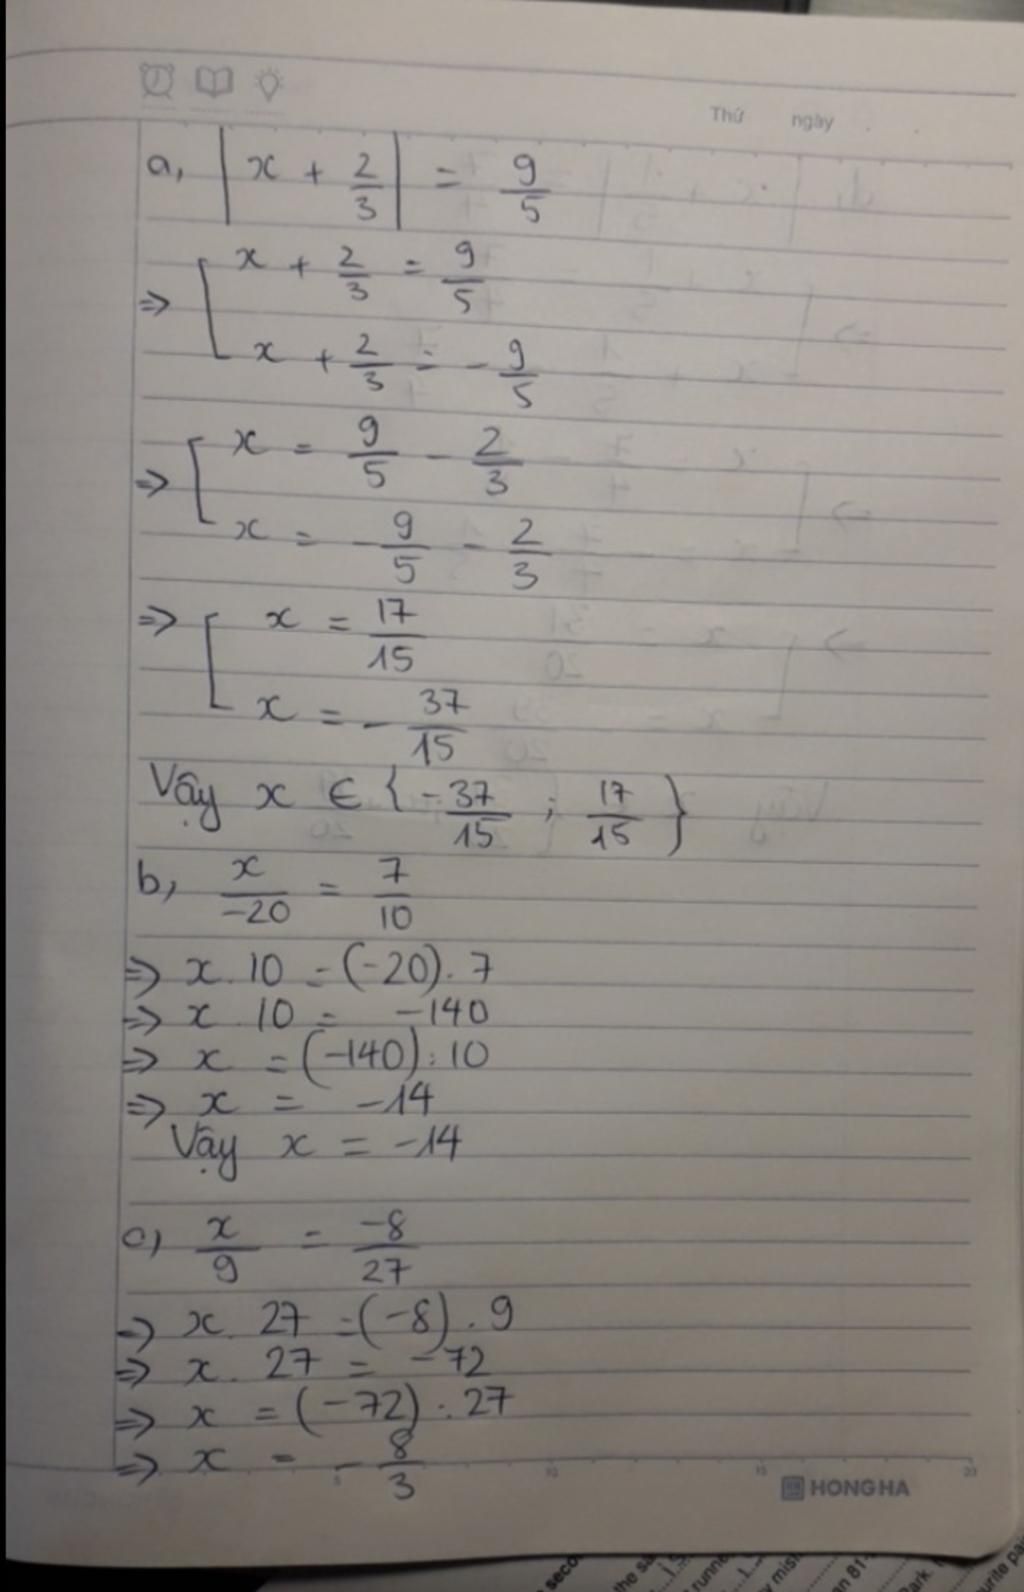 Thứ ngày
a, |x + 2/3| = 9/5
⇒ [ x + 2/3 = 9/5
x + 2/3 = - 9/5
⇒ [ x = 9/5 - 2/3
x = - 9/5 - 2/3
⇒ [ x = 17/15
x = - 37/15
Vậy x ∈ { - 37/15 ; 17/15 }
b, x/-20 = 7/10
⇒ x . 10 = (-20) . 7
⇒ x . 10 = -140
⇒ x = (-140) : 10
⇒ x = -14
Vậy x = -14
c, x/9 = -8/27
⇒ x . 27 = (-8) . 9
⇒ x . 27 = -72
⇒ x = (-72) : 27
⇒ x = - 8/3
5 10 15 20
HONG HA